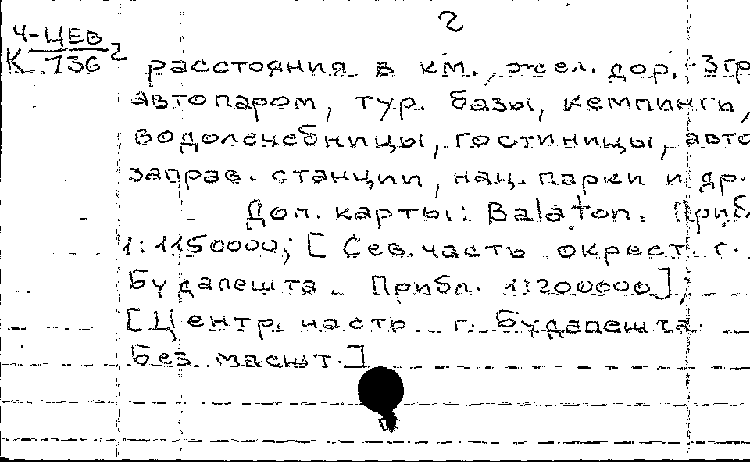 2
Ч-ЦЕВ
К 136 2
расстояния в км., жел. дор.
автопаром, тур. базы, кемпинги,
водолечебницы, гостиницы, авто
заправ. станции, нац. парки и др.
Доп. карты: Balaton. Прибл.
1:1150000; [Сев. часть окрест. г.
Будапешта. Прибл. 1:200000];
[Центр. часть г. Будапешта.
Без масшт.]